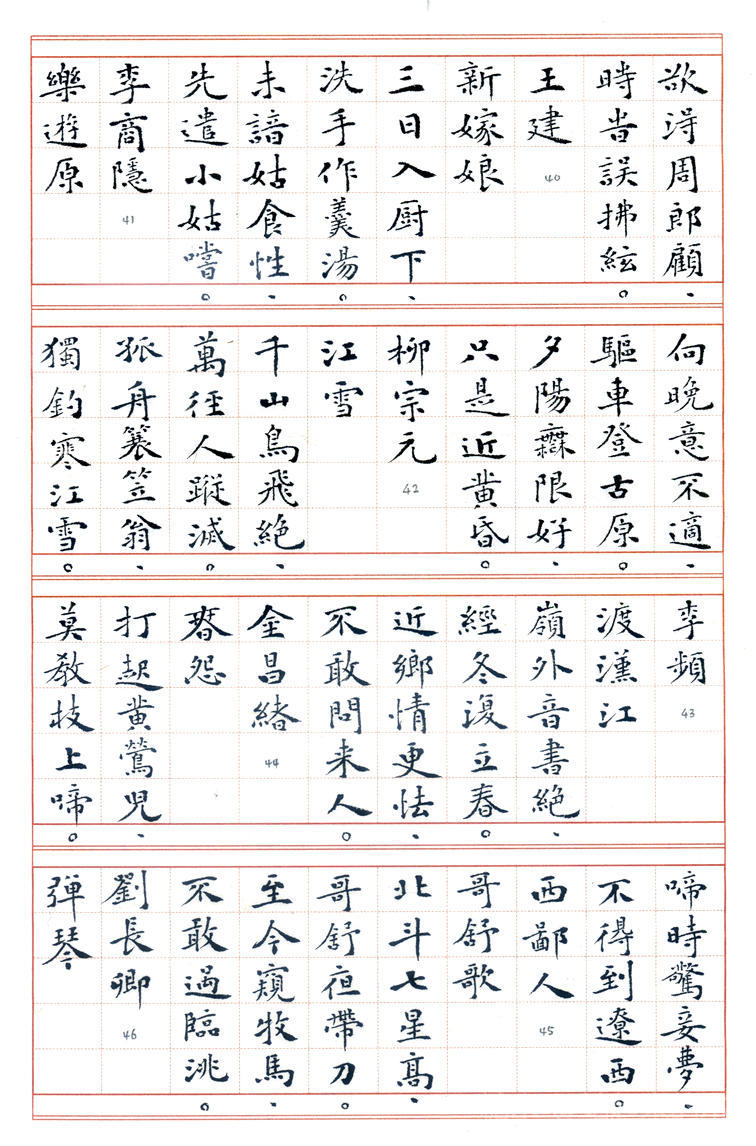 欲得周郎顧、
時旹誤拂絃。
王建 40
新嫁娘
三日入厨下、
洗手作羹湯。
未諳姑食性、
先遣小姑嚐。
李商隱 41
樂遊原
向晚意不適、
驅車登古原。
夕陽無限好、
只是近黄昏。
柳宗元 42
江雪
千山鳥飛絶、
萬徑人蹤滅。
孤舟簑笠翁、
獨釣寒江雪。
李頻 43
渡漢江
嶺外音書絶、
經冬復立春。
近鄉情更怯、
不敢問来人。
金昌緒 44
春怨
打起黄鶯兒、
莫教枝上啼。
啼時驚妾夢、
不得到遼西。
西鄙人 45
哥舒歌
北斗七星髙、
哥舒夜帶刀。
至今窺牧馬、
不敢過臨洮。
劉長卿 46
彈琴